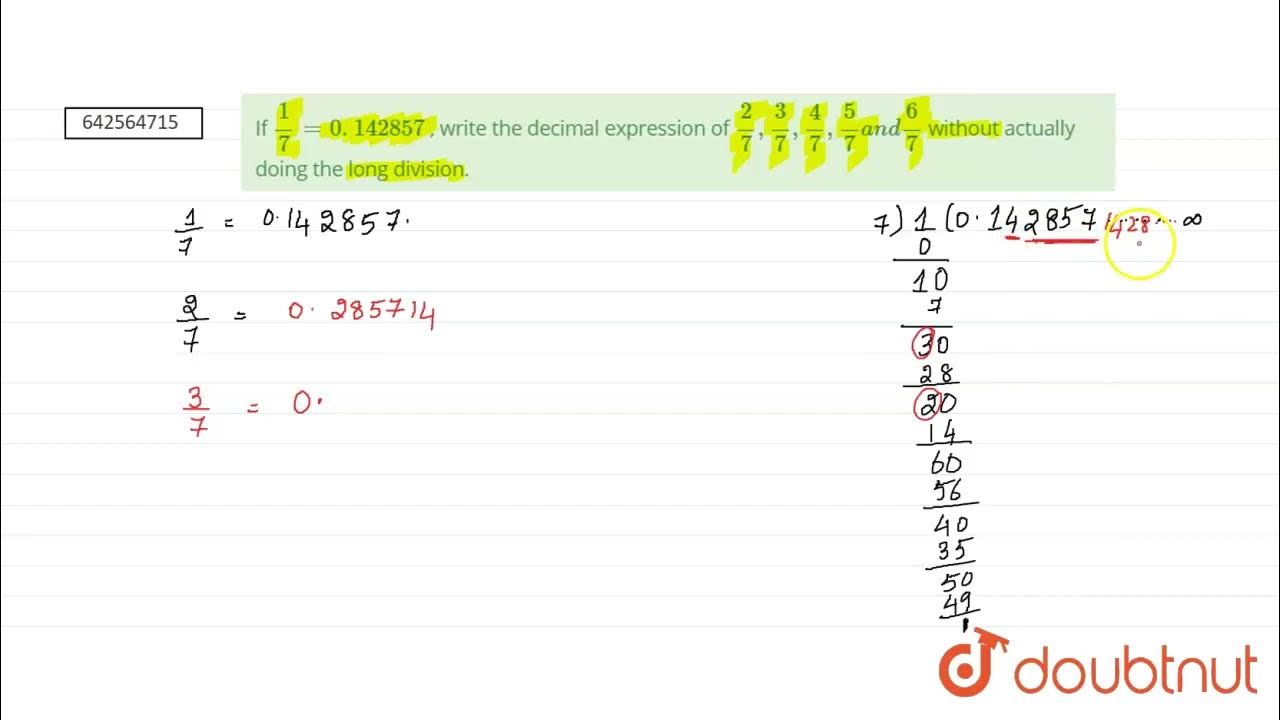 642564715
If 1/7 = 0.142857, write the decimal expression of 2/7, 3/7, 4/7, 5/7 and 6/7 without actually
doing the long division.
1/7 = 0.142857.
2/7 = 0.285714
3/7 = 0.
7) 1 (0.142857 1428 ..... ∞
0
10
7
30
28
20
14
60
56
40
35
50
49
1
doubtnut